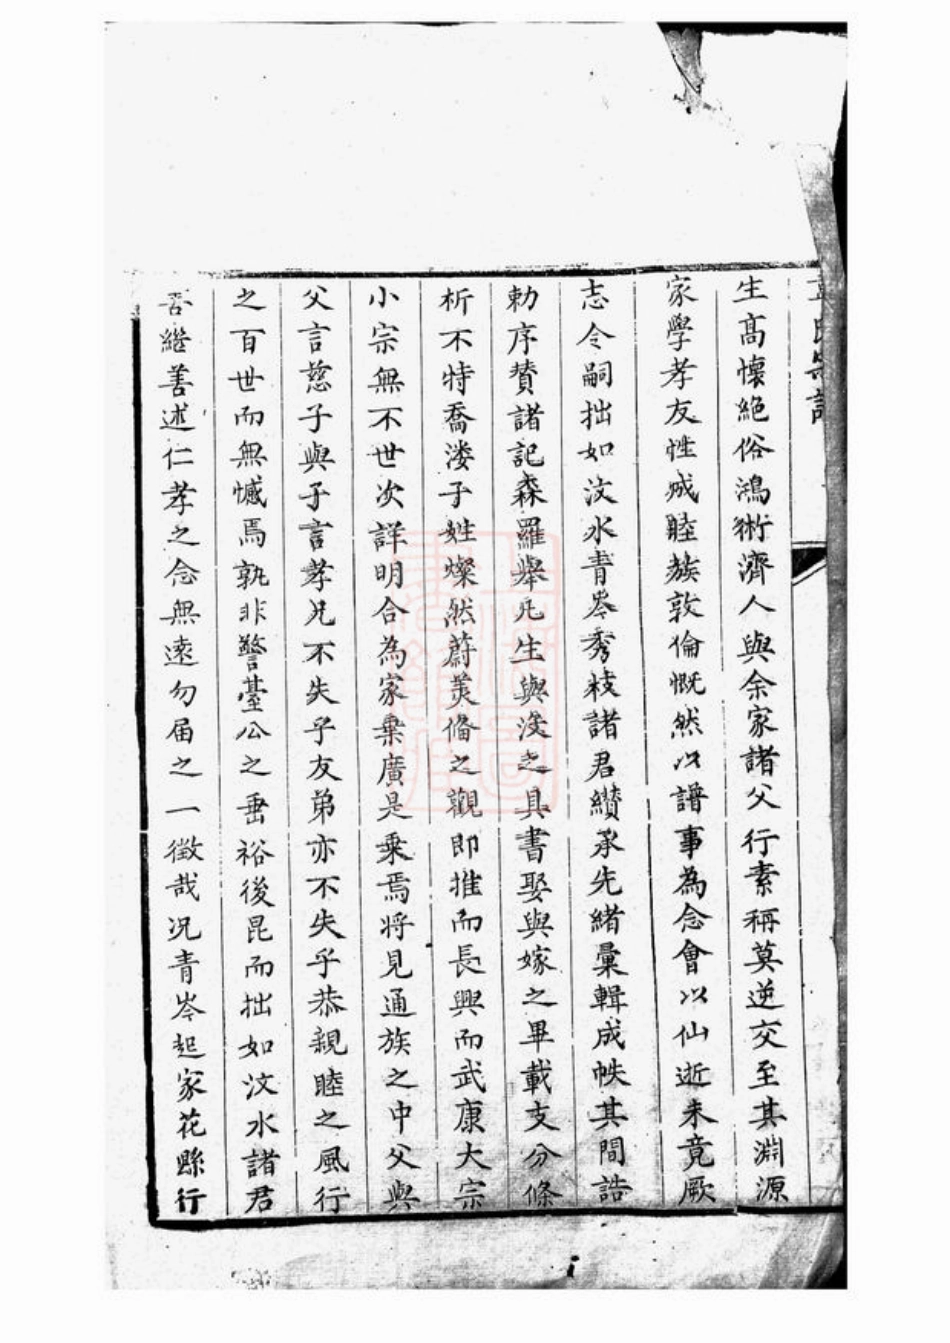 氏宗譜
生高懷絶俗鴻術濟人與余家諸父行素稱莫逆交至其淵源
家學孝友性成睦族敦倫慨然以譜事為念會以仙逝未竟厥
志令嗣拙如汶水青岑秀枝諸君纘承先緒彙輯成帙其間誥
勅序贊諸記森羅舉凢生與沒之具書娶與嫁之畢載支分條
析不特喬淒子姓燦然蔚羙俻之觀即推而長興而武康大宗
小宗無不世次詳明合為家乗廣是乗焉将見通族之中父與
父言慈子與子言孝兄不失乎友弟亦不失乎恭親睦之風行
之百世而無憾焉孰非警臺公之垂裕後昆而拙如汶水諸君
善繼善述仁孝之念無遠勿届之一徵哉况青岑起家花縣行